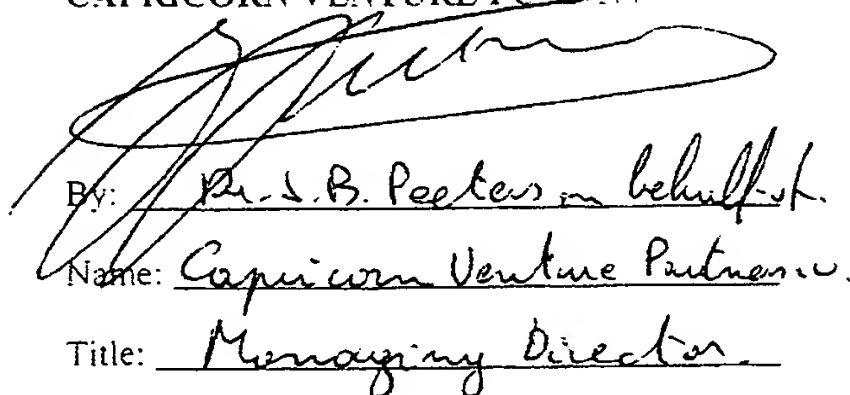 CAPRICORN VENTURE
By: Dr. J.B. Peeters on behalf of.
Name: Capricorn Venture Partners n.v.
Title: Managing Director.